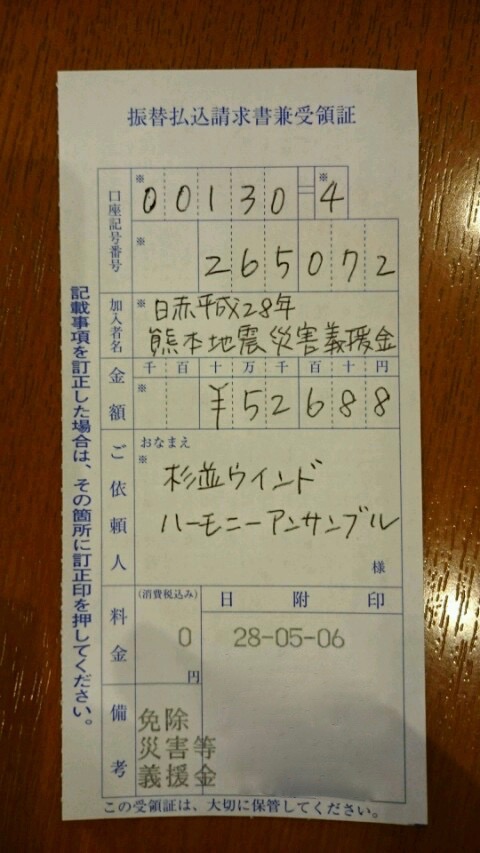 振替払込請求書兼受領証
口座記号番号
※
00130=4
※
※
265072
加入者名
※
日赤平成28年
熊本地震災害義援金
金額
千百十万千百十円
※
¥52688
ご依頼人
おなまえ
※
杉並ウインド
ハーモニーアンサンブル
様
料金
(消費税込み)
0
円
日附印
28-05-06
備考
免除
災害等
義援金
記載事項を訂正した場合は、その箇所に訂正印を押してください。
この受領証は、大切に保管してください。